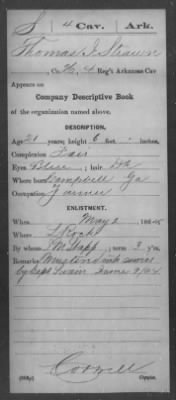 S | 4 Cav. | Ark.
Thomas J. Strawn
, Co. , 4 Reg't Arkansas Cav
Appears on
Company Descriptive Book
of the organization named above.
DESCRIPTION.
Age 21 years; height 6 feet - inches
Complexion Fair
Eyes Blue ; hair
Where born Campbell Ga
Occupation Farmer
ENLISTMENT.
When May 2 , 186
Where L Rock
By whom ; term 3 y'rs.
Remarks: Mustered into service
by Capt Swain June 9/64
Copyist.